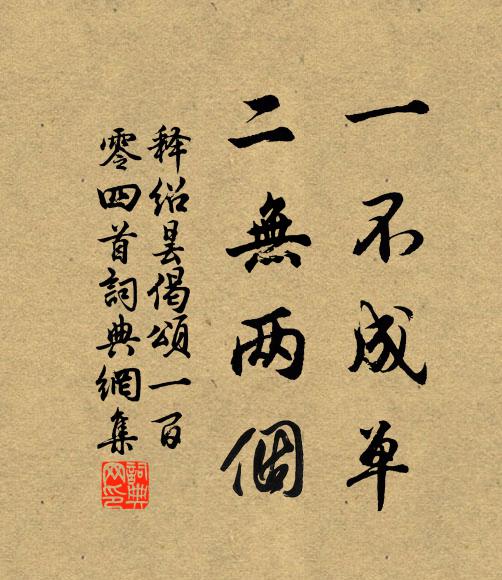 一不成单
二無两個
释绍昙偈頌一百
零四首詞典網集
詞典网印